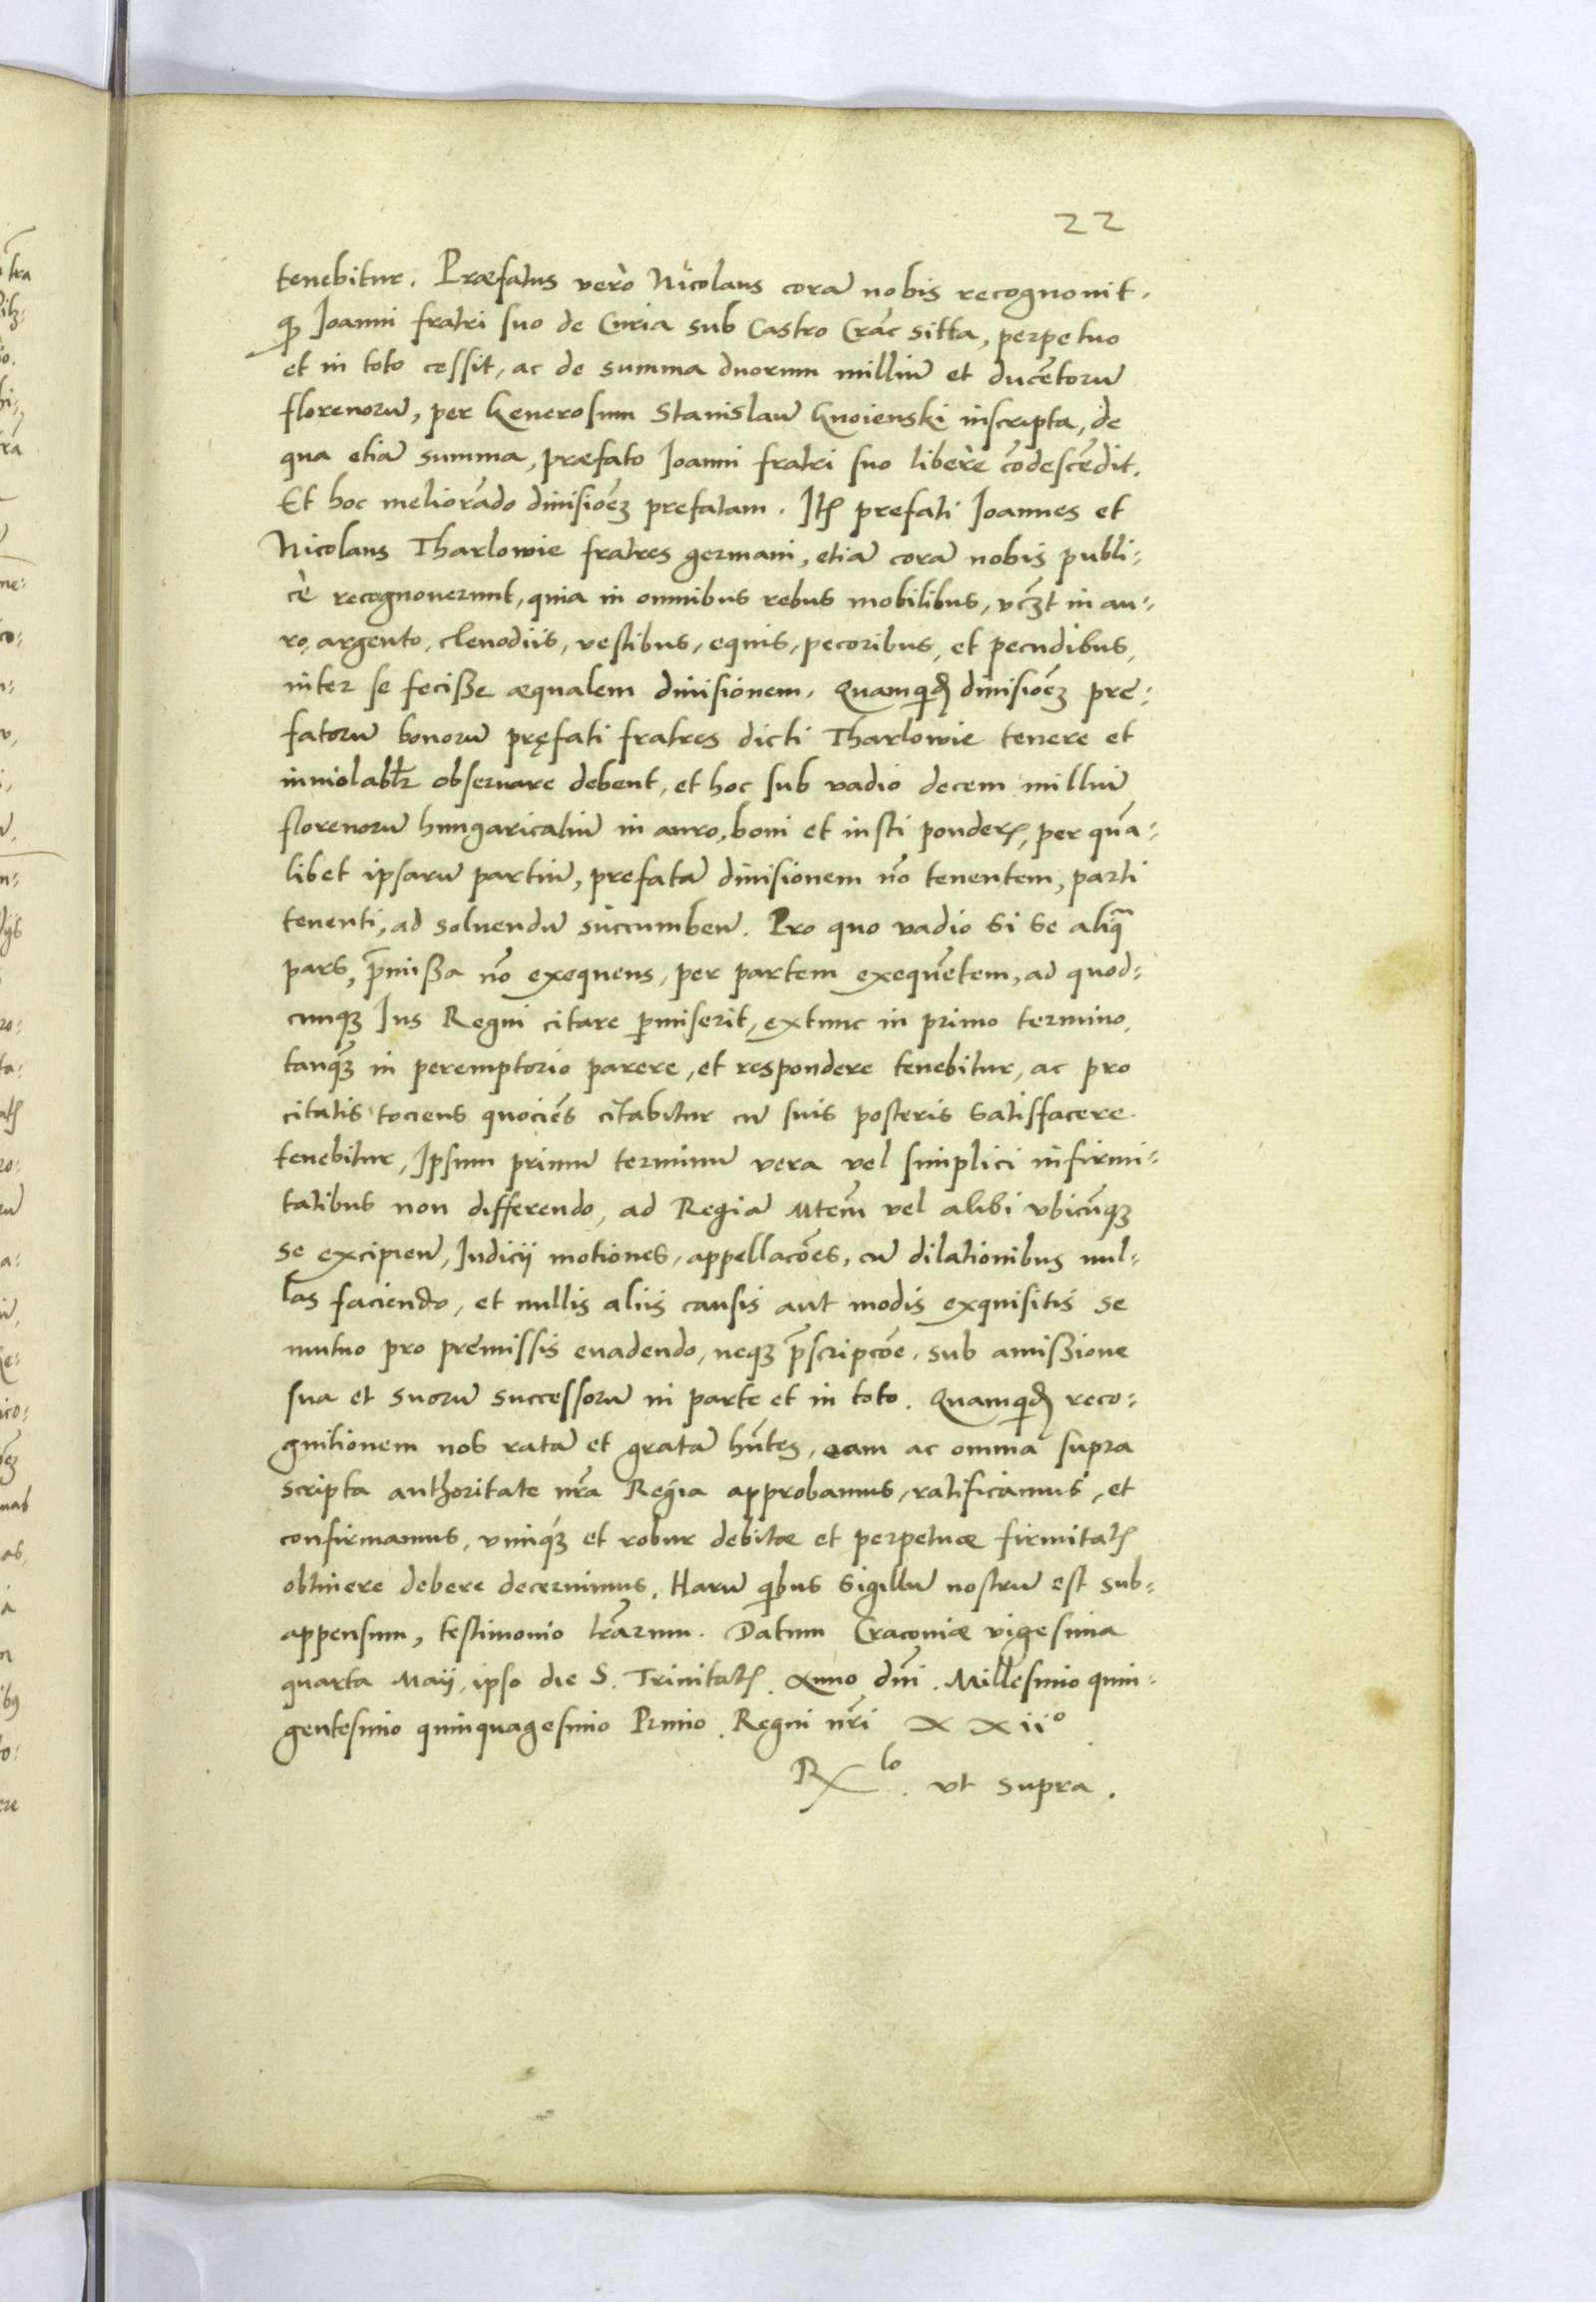 22
tenebitur. Præfatus verò Nicolaus corã nobis recognouit.
ꝙ Joanni fratri suo de Curia sub Castro Crãc sitta, perpetuo
et in toto cessit, ac de summa duorum milliũ et ducẽtorũ
florenorũ, per Generosum Stanislaũ Gnoienski inscripta, de
qua etiã summa, præfato Joanni fratri suo liberè cõdescẽdit.
Et hoc meliorãdo diuisioẽꝫ prefatam. Itꝭ prefati Joannes et
Nicolaus Tharlowie fratres germani, etiã corã nobis publi:
cè recognouerunt, quia in omnibus rebus mobilibus, vcꝫt in au:
ro, argento, clenodiis, vestibus, equis, pecoribus, et pecudibus,
inter se fecisse æqualem diuisionem. Quamquidꝭ diuisioẽꝫ pre:
fatorũ bonorũ pręfati fratres dicti Tharlowie tenere et
inuiolabłr obseruare debent, et hoc sub vadio decem milliũ
florenorũ hungaricaliũ in auro, boni et iusti ponderꝭ, per quã:
libet ipsarũ partiũ, prefatã diuisionem nõ tenentem, parti
tenenti, ad soluendũ succumbeñ. Pro quo vadio si se aliq̃
pars, p̃missa nõ exequens, per partem exequẽtem, ad quod:
cunqꝫ Jus Regni citare ꝑmiserit, extunc in primo termino,
tanq̃ꝫ in peremptorio parere, et respondere tenebitur, ac pro
citatis tociens quociẽs citabitur cũ suis posteris satisfacere
tenebitur, Ipsum primũ terminũ vera vel simplici infirmi:
tatibus non differendo, ad Regiã Mtẽm vel alibi vbicũqꝫ
se excipieñ, Judicii motiones, appellacões, cũ dilationibus nul:
las faciendo, et nullis aliis causis aut modis exquisitis se
mutuo pro premissis euadendo, neqꝫ p̃scripcõe, sub amissione
sua et suorũ successorũ in parte et in toto. Quamquidꝭ reco:
gnitionem nos ratã et gratã hñtes, eam ac omnia supra
scripta authoritate nrã Regia approbamus, ratificamus, et
confirmamus, vimqꝫ et robur debitæ et perpetuæ firmitatꝭ
obtinere debere decernimus. Harũ quibus sigillũ nostrũ est sub:
appensum, testimonio lrãrum. Datum Cracouiæ vigesima
quarta Maij, ipso die S. Trinitatꝭ. Anno dñi. Millesimo quin:
gentesimo quinquagesimo Primo. Regni nrĩ XXiiº
Rlo. vt supra.